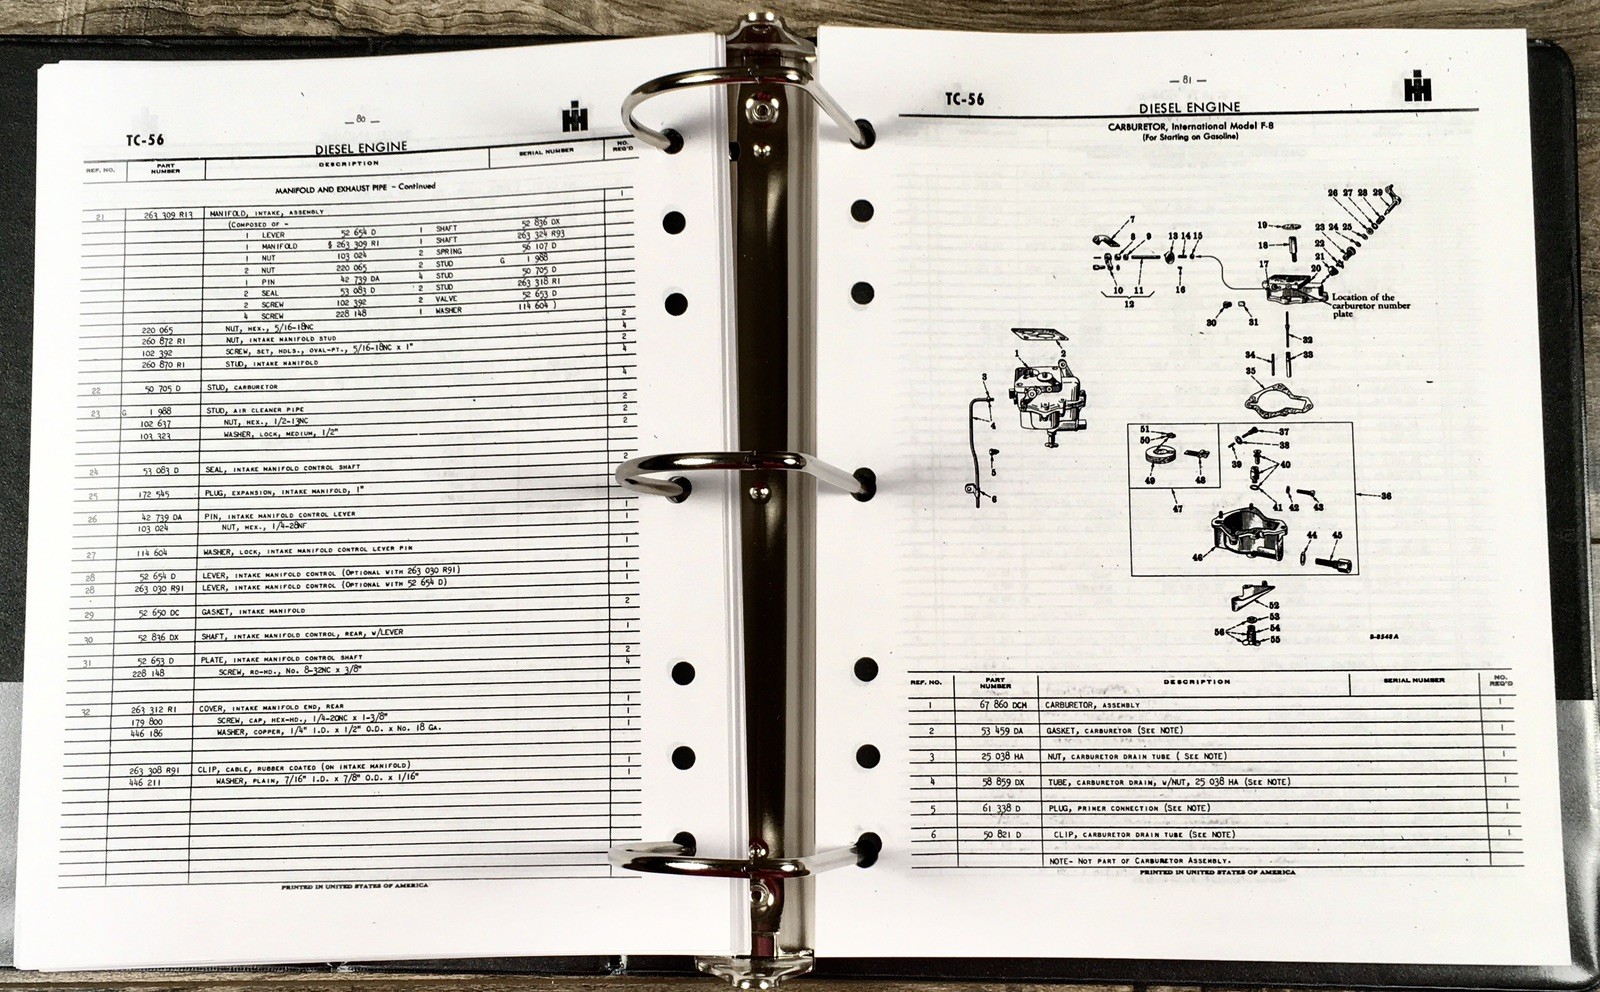 — 80 —
TC-56
DIESEL ENGINE
REF. NO. PART NUMBER DESCRIPTION SERIAL NUMBER NO. REQ'D
MANIFOLD AND EXHAUST PIPE - Continued
21 263 309 R13 MANIFOLD, INTAKE, ASSEMBLY 1
(COMPOSED OF -
1 LEVER 52 654 D 1 SHAFT 52 836 DX
1 MANIFOLD § 263 309 R1 1 SHAFT 263 324 R93
1 NUT 103 024 2 SPRING 56 107 D
2 NUT 220 065 2 STUD G 1 988
1 PIN 42 739 DA 4 STUD 50 705 D
2 SEAL 53 083 D 2 STUD 263 318 R1
2 SCREW 102 392 2 VALVE 52 653 D
4 SCREW 228 148 1 WASHER 114 604 )
220 065 NUT, HEX., 5/16-18NC 2
260 872 R1 NUT, INTAKE MANIFOLD STUD 4
102 392 SCREW, SET, HDLS., OVAL-PT., 5/16-18NC x 1" 2
260 870 R1 STUD, INTAKE MANIFOLD 4
22 50 705 D STUD, CARBURETOR 4
23 G 1 988 STUD, AIR CLEANER PIPE 2
102 637 NUT, HEX., 1/2-13NC 2
103 323 WASHER, LOCK, MEDIUM, 1/2" 2
24 53 083 D SEAL, INTAKE MANIFOLD CONTROL SHAFT 2
25 172 545 PLUG, EXPANSION, INTAKE MANIFOLD, 1"
26 42 739 DA PIN, INTAKE MANIFOLD CONTROL LEVER 1
103 024 NUT, HEX., 1/4-28NF 1
27 114 604 WASHER, LOCK, INTAKE MANIFOLD CONTROL LEVER PIN 1
28 52 654 D LEVER, INTAKE MANIFOLD CONTROL (OPTIONAL WITH 263 030 R91) 1
28 263 030 R91 LEVER, INTAKE MANIFOLD CONTROL (OPTIONAL WITH 52 654 D) 1
29 52 650 DC GASKET, INTAKE MANIFOLD 2
30 52 836 DX SHAFT, INTAKE MANIFOLD CONTROL, REAR, W/LEVER 1
31 52 653 D PLATE, INTAKE MANIFOLD CONTROL SHAFT 2
228 148 SCREW, RD-HD., No. 8-32NC x 3/8" 4
32 263 312 R1 COVER, INTAKE MANIFOLD END, REAR 1
179 800 SCREW, CAP, HEX-HD., 1/4-20NC x 1-3/8" 1
446 186 WASHER, COPPER, 1/4" I.D. x 1/2" O.D. x No. 18 GA. 1
263 308 R91 CLIP, CABLE, RUBBER COATED (ON INTAKE MANIFOLD) 1
446 211 WASHER, PLAIN, 7/16" I.D. x 7/8" O.D. x 1/16" 1
PRINTED IN UNITED STATES OF AMERICA
— 81 —
TC-56
DIESEL ENGINE
CARBURETOR, International Model F-8
(For Starting on Gasoline)
26 27 28 29
7
19 23 24 25
8 9 13 14 15
18 22
21
17 20
10 11 16
12
Location of the
carburetor number
plate
30 31
32
1 2
34 33
3
35
4
51 37
50 38
5
39 40
49 48
6
36
47 41 42 43
44 45
46
52
53
56 54
55
B-8548A
REF. NO. PART NUMBER DESCRIPTION SERIAL NUMBER NO. REQ'D
1 67 860 DCM CARBURETOR, ASSEMBLY 1
2 53 459 DA GASKET, CARBURETOR (SEE NOTE) 1
3 25 038 HA NUT, CARBURETOR DRAIN TUBE ( SEE NOTE) 1
4 58 859 DX TUBE, CARBURETOR DRAIN, W/NUT, 25 038 HA (SEE NOTE) 1
5 61 338 D PLUG, PRIMER CONNECTION (SEE NOTE) 1
6 50 821 D CLIP, CARBURETOR DRAIN TUBE (SEE NOTE) 1
NOTE- NOT PART OF CARBURETOR ASSEMBLY.
PRINTED IN UNITED STATES OF AMERICA